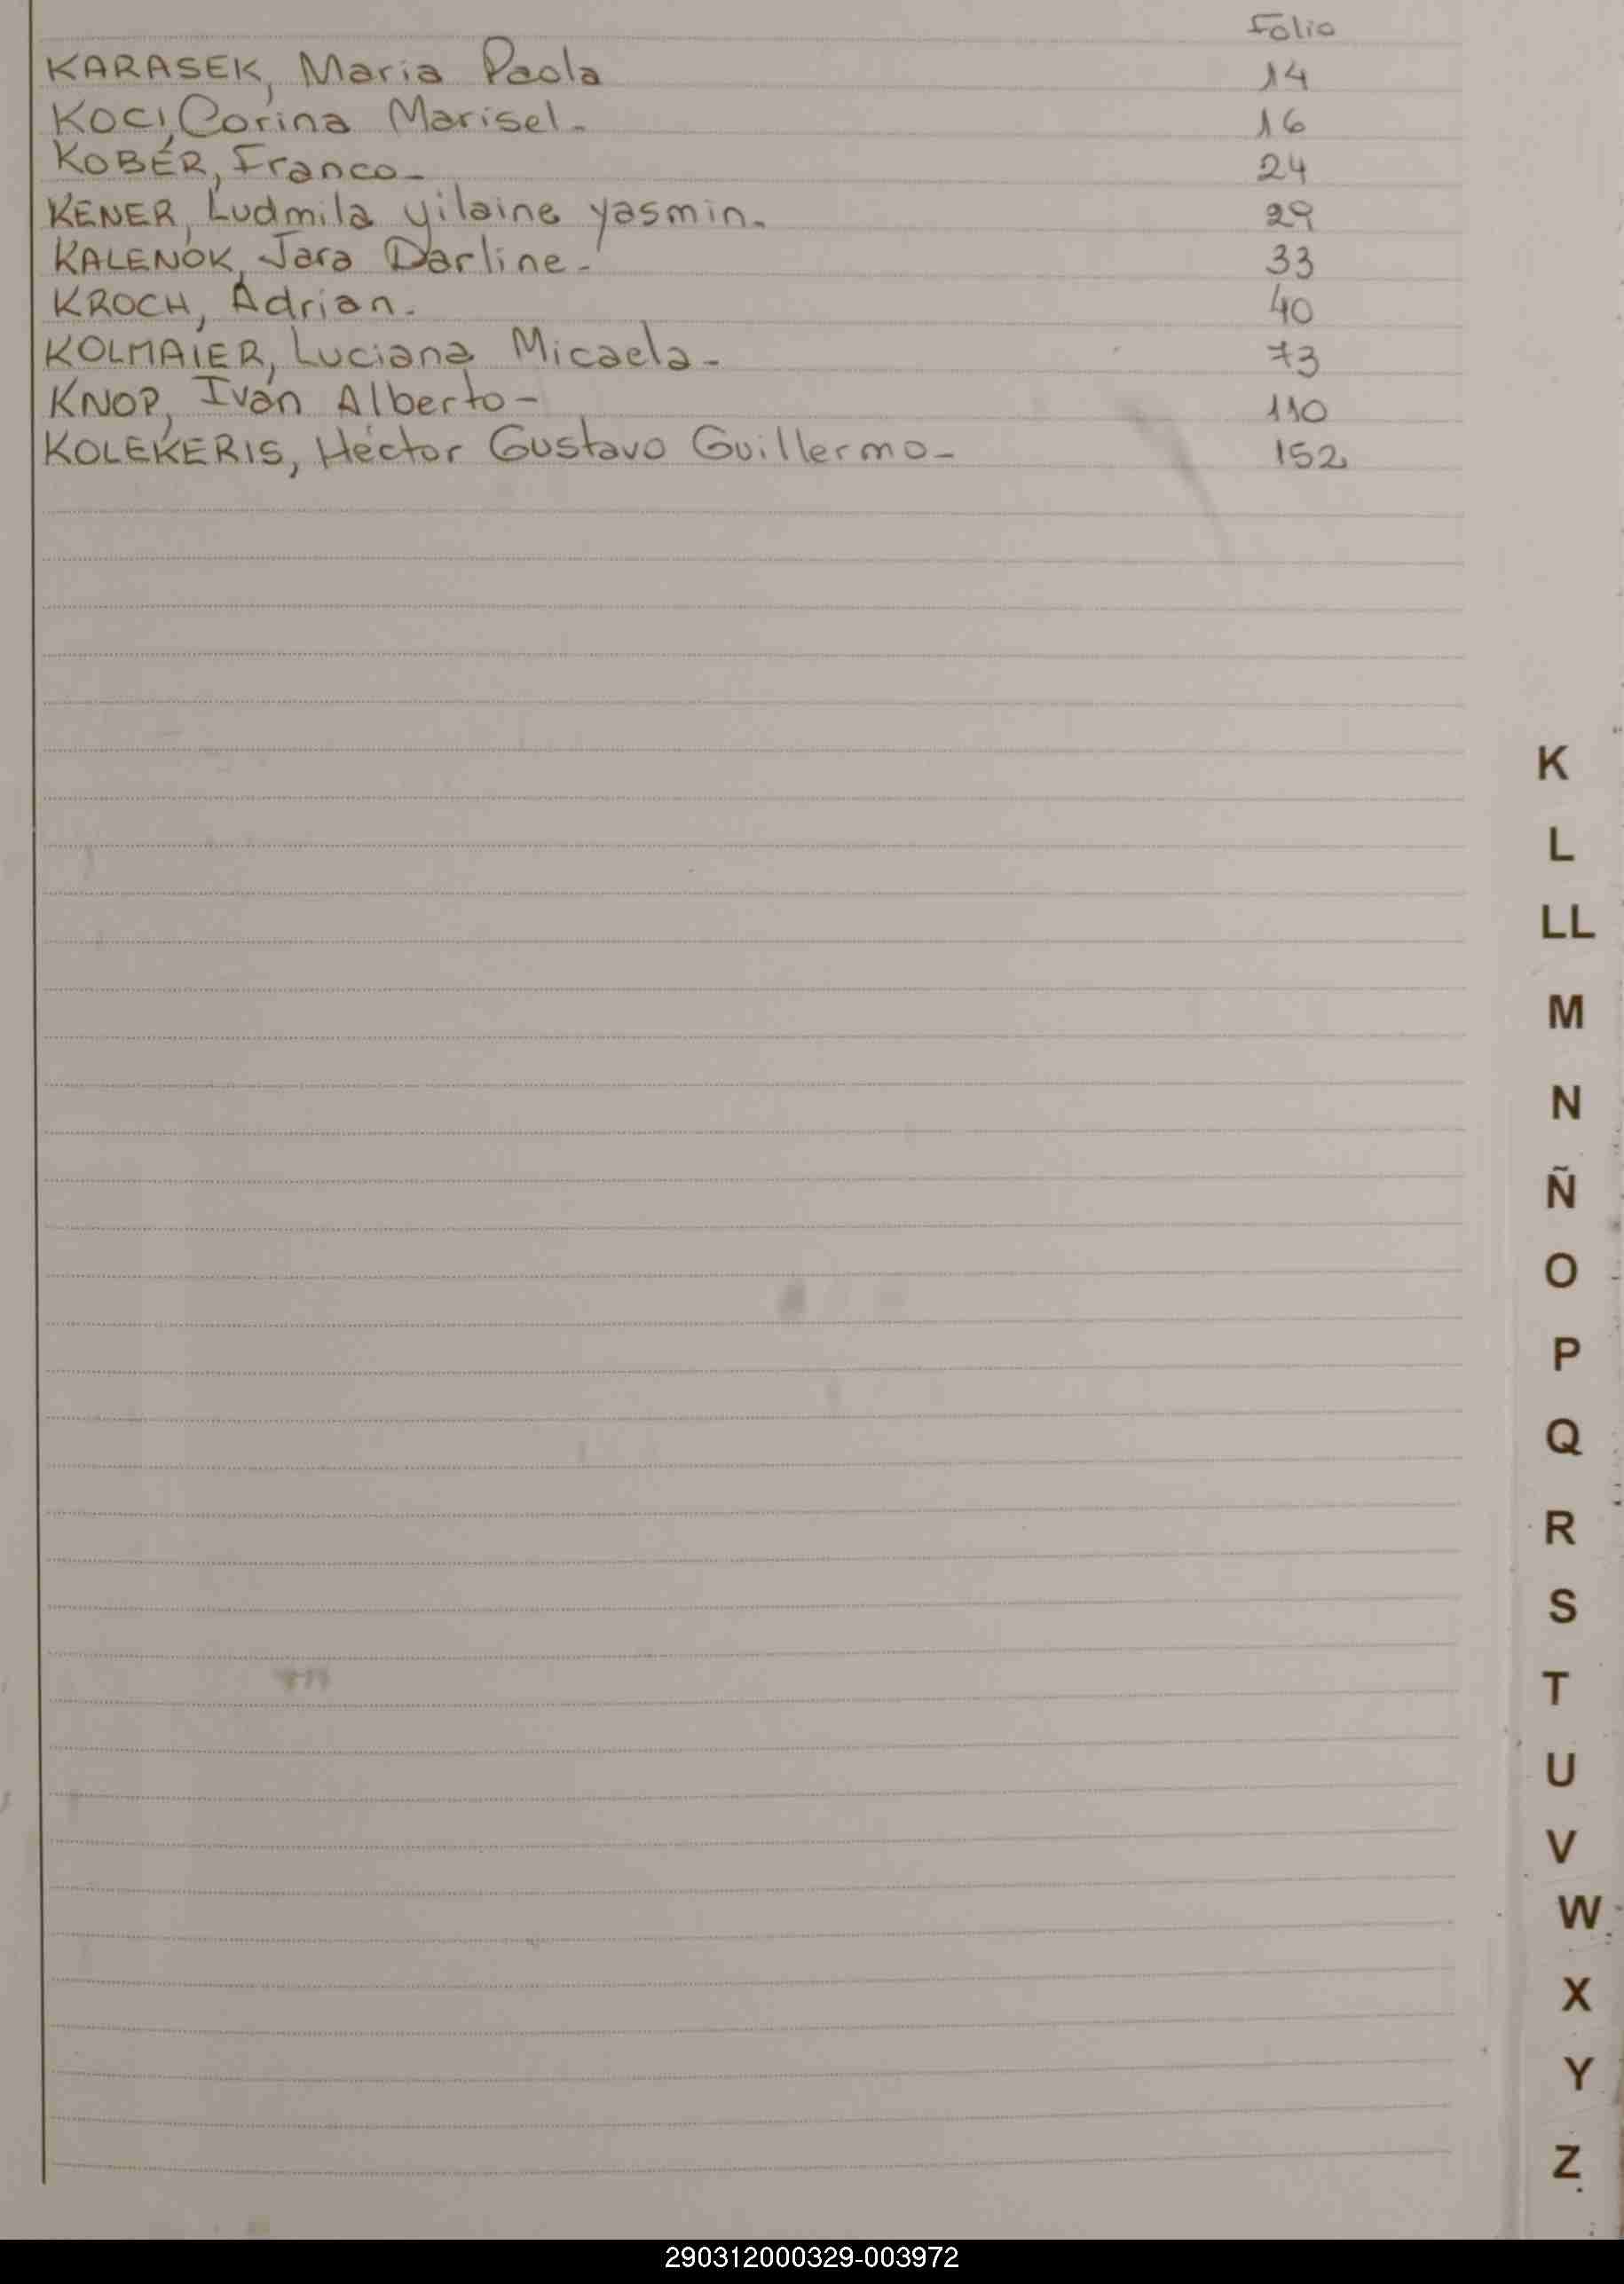 Folio
KARASEK, Maria Paola 14
KOCI, Corina Marisel- 16
KOBER, Franco- 24
KENER, Ludmila yilaine yasmin- 29
KALENOK, Jara Darline- 33
KROCH, Adrian- 40
KOLMAIER, Luciana Micaela- 73
KNOP, Iván Alberto- 110
KOLEKERIS, Héctor Gustavo Guillermo- 152
K
L
LL
M
N
Ñ
O
P
Q
R
S
T
U
V
W
X
Y
Z
290312000329-003972